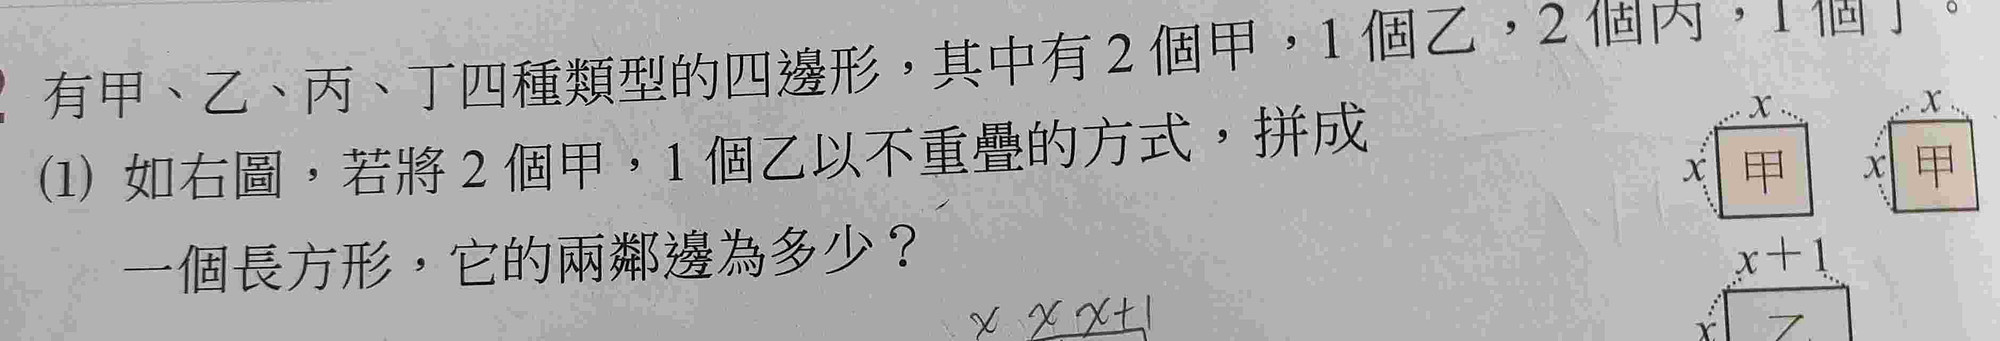 有甲、乙、丙、丁四種類型的四邊形，其中有2個甲，1個乙，2個丙，1個丁。
(1) 如右圖，若將2個甲，1個乙以不重疊的方式，拼成
一個長方形，它的兩鄰邊為多少？
x x
x 甲 x 甲
x+1
x 乙
x x x+1